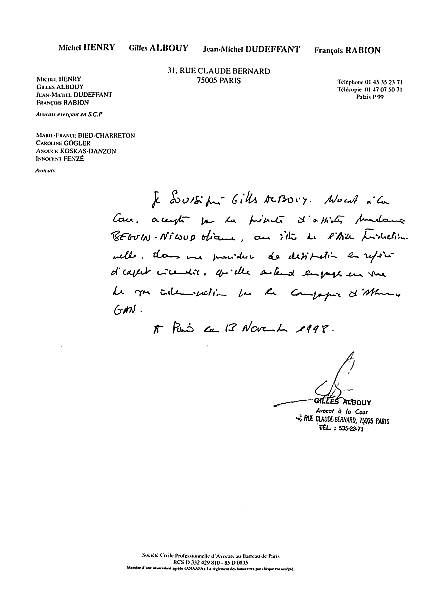 Michel HENRY Gilles ALBOUY Jean-Michel DUDEFFANT François RABION
31, RUE CLAUDE BERNARD
75005 PARIS
MICHEL HENRY
GILLES ALBOUY
JEAN-MICHEL DUDEFFANT
FRANÇOIS RABION
Avocats exerçant en S.C.P
Téléphone 01 45 35 23 71
Télécopie 01 47 07 50 71
Palais P 99
MARIE-FRANCE BIED-CHARRETON
CAROLINE GOGLER
ANOUCK KOSKAS-DANZON
INNOCENT FENZÉ
Avocats
Je Soussigné Gilles ALBOUY. Avocat à la
Cour, accepte par la présente d'assister Madame
BEGUIN-NICOUD, au titre de l'Aide Juridiction
nelle, dans une procédure de désignation en référé
d'expert incendie, qu'elle entend engager en vue
de son indemnisation par la Compagnie d'Assurances
GAN.
A Paris le 13 Novembre 1998.
GILLES ALBOUY
Avocat à la Cour
RUE CLAUDE-BERNARD, 75005 PARIS
TÉL. : 535-23-71
Société Civile Professionnelle d'Avocats au Barreau de Paris
RCS D 332 429 810 - 85 D 0835